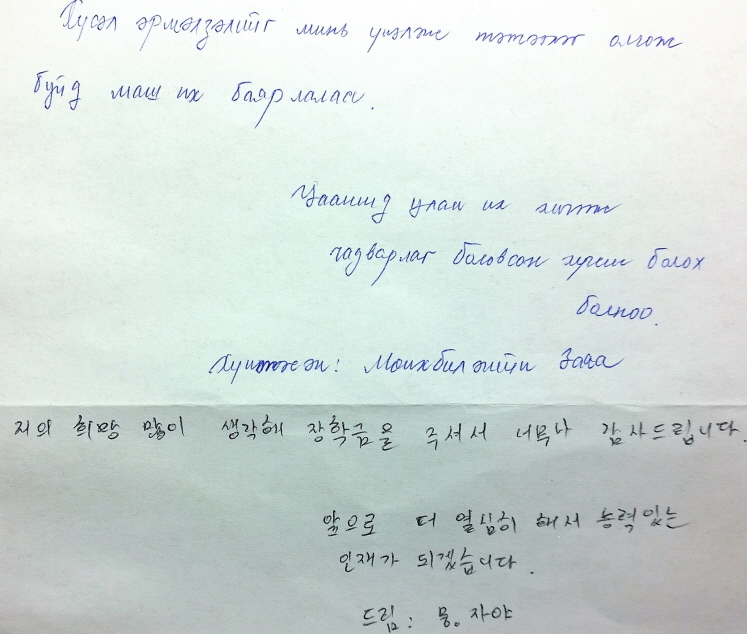 Хүсэл эрмэлзэлийг минь үнэлж тэтгэлэг олгож
буйд маш их баярлалаа.
Цаашид улам их хичээж
чадварлаг боловсон хүчин болох
болноо.
Хүндэтгэсэн: Мөнхбилэгийн Заяа
저의 희망 많이 생각해 장학금을 주셔서 너무나 감사드립니다.
앞으로 더 열심히 해서 능력있는
인재가 되겠습니다.
드림: 뭉. 자야